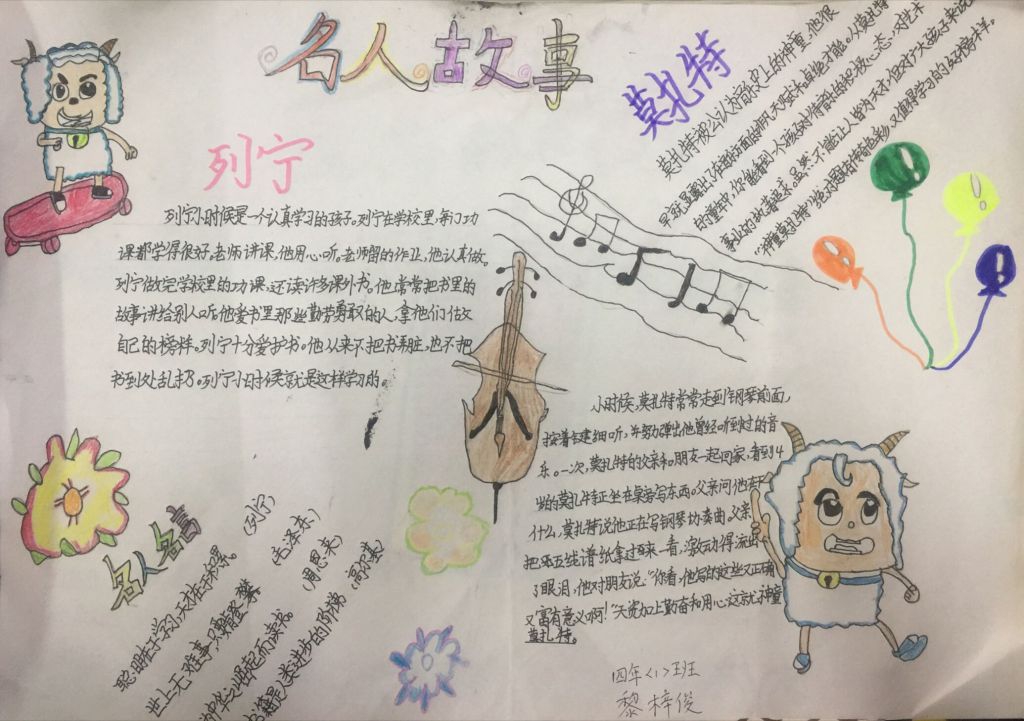 名人故事
列宁
列宁小时候是一个认真学习的孩子。列宁在学校里,每门功
课都学得很好,老师讲课,他用心听,老师留的作业,他认真做。
列宁做完学校里的功课,还读许多课外书。他常常把书里的
故事讲给别人听他爱书里那些勤劳勇敢的人,拿他们做
自己的榜样。列宁十分爱护书。他从来不把书弄脏,也不把
书到处乱扔。列宁小时候就是这样学习的。
莫扎特
莫扎特被公认为音乐史上的神童,他很
早就显露出了作曲方面的非凡天赋和卓绝才能。从莫扎特
的童年中,你能看到一个孩子对待音乐的积极心态,对艺术
事业的执着追求。虽然不能让人皆为天才,但对广大孩子来说
小时候,莫扎特常常走到钢琴前面,
按着古建细听,并努力弹出他曾经听到过的音
乐。一次,莫扎特的父亲和朋友一起回家,看到4
岁的莫扎特正坐在桌旁写东西。父亲问他在
什么,莫扎特说他正在写钢琴协奏曲。父亲
把五线谱纸拿过来一看,激动得流出
了眼泪,他对朋友说:"你看,他写的这些又正确
又富有意义啊!"天资加上勤奋和用心,这就神童
莫扎特。
名人名言
聪明在于学习,天才在于积累。 (列宁)
世上无难事,只要肯登攀 (毛泽东)
为中华之崛起而读书。 (周恩来)
书籍是人类进步的阶梯 (高尔基)
四年<1>班
黎梓俊